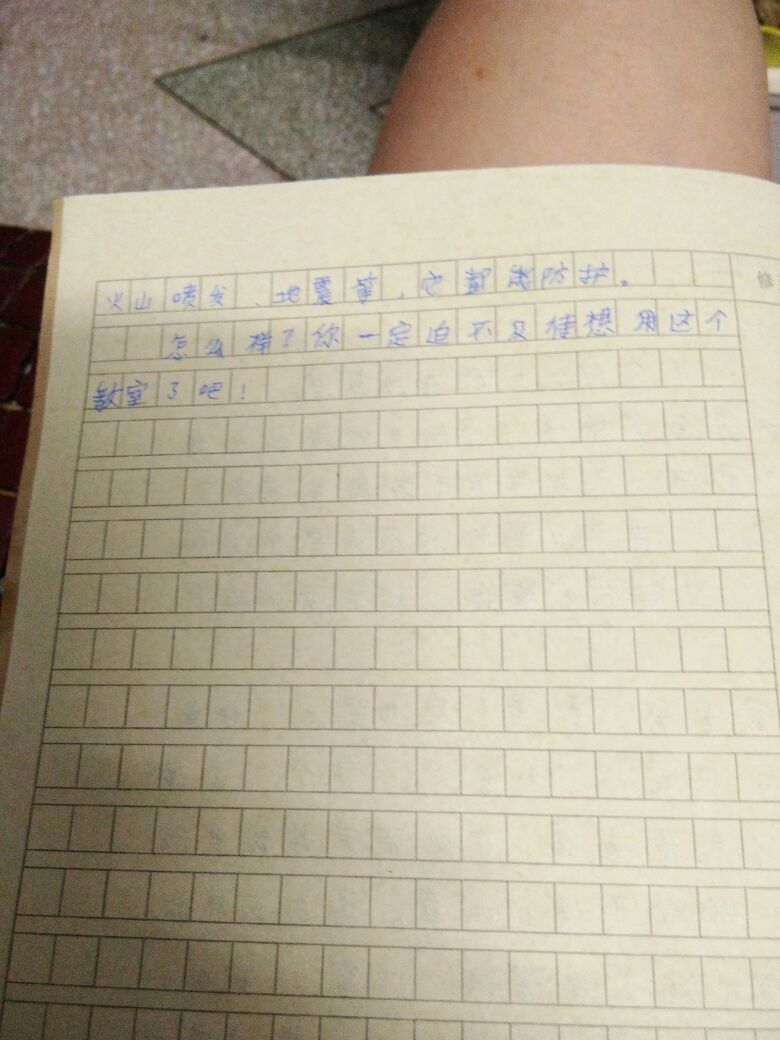 火山喷发、地震等,它都能防护。
怎么样了你一定迫不及待想用这个
教室了吧!
修